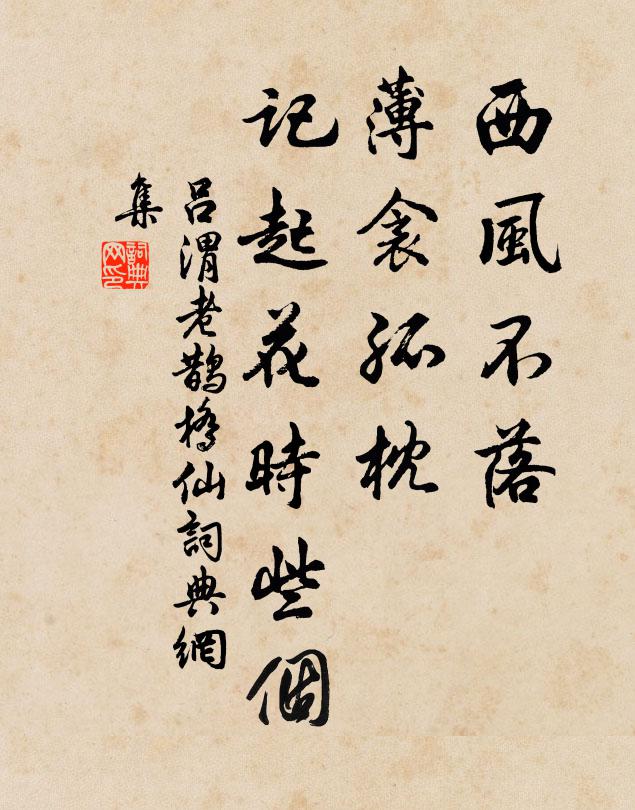 西風不落
薄衾孤枕
記起花時些個
呂渭老鵲橋仙詞典網
集
詞典
网印